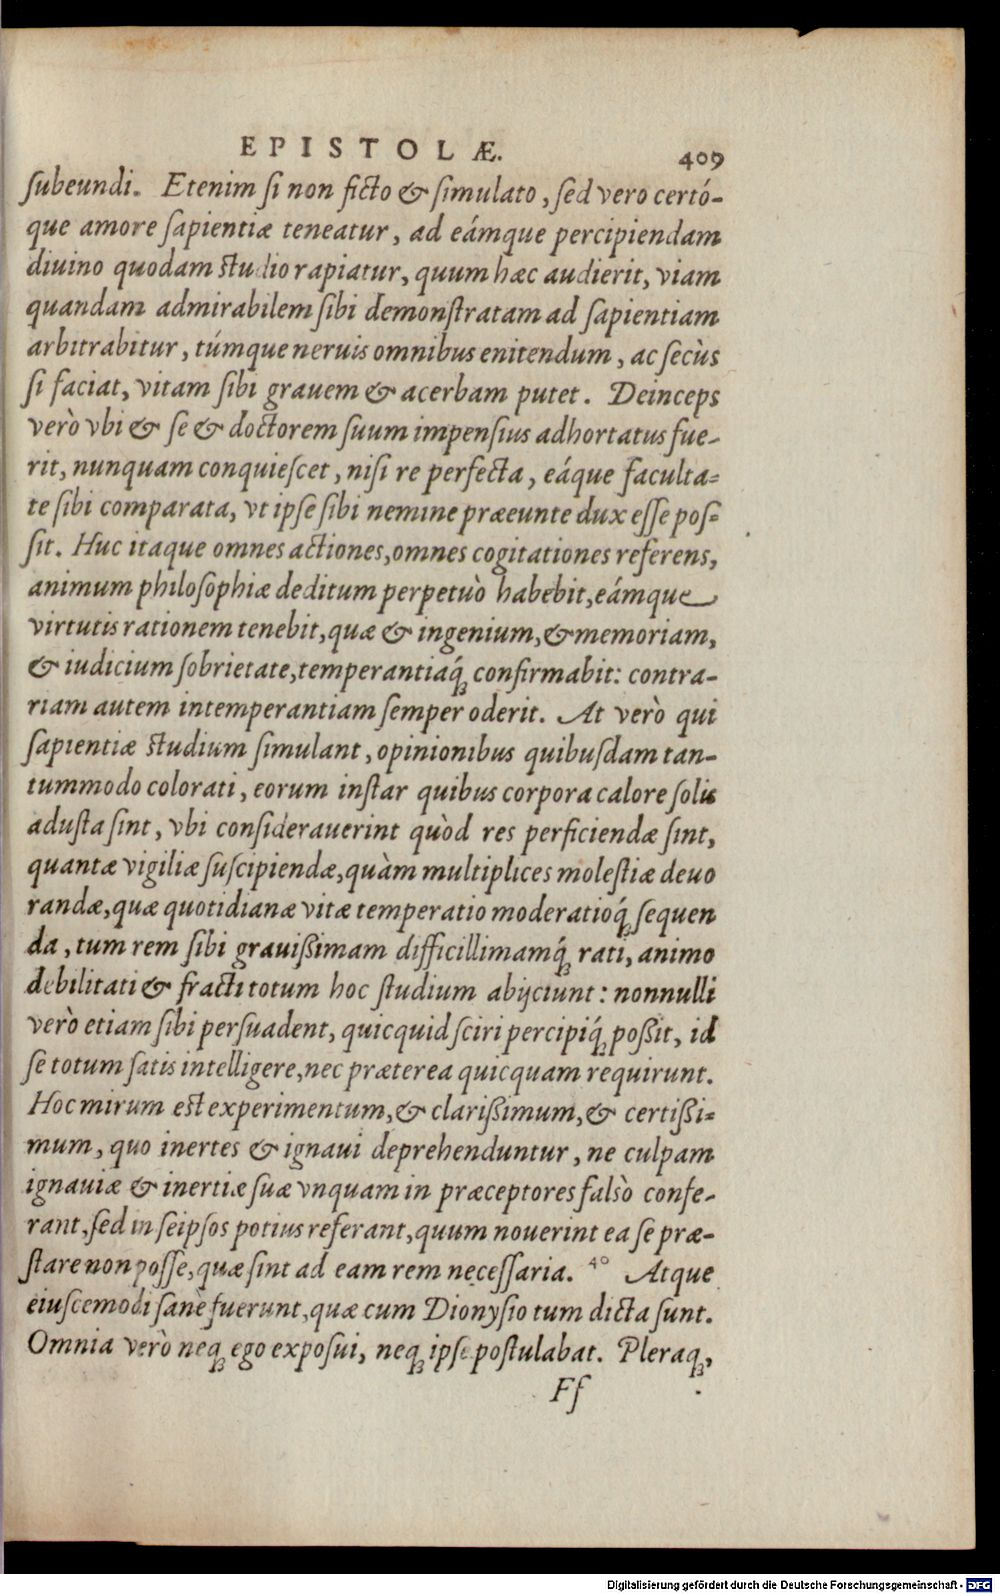 EPISTOLÆ. 409
ſubeundi. Etenim ſi non ficto & ſimulato, ſed vero certó-
que amore ſapientiæ teneatur, ad eámque percipiendam
diuino quodam ſtudio rapiatur, quum hæc audierit, viam
quandam admirabilem ſibi demonſtratam ad ſapientiam
arbitrabitur, túmque neruis omnibus enitendum, ac ſecùs
ſi faciat, vitam ſibi grauem & acerbam putet. Deinceps
verò vbi & ſe & doctorem ſuum impenſius adhortatus fue-
rit, nunquam conquieſcet, niſi re perfecta, eáque faculta-
te ſibi comparata, vt ipſe ſibi nemine præeunte dux eſſe poſ-
ſit. Huc itaque omnes actiones, omnes cogitationes referens,
animum philoſophiæ deditum perpetuò habebit, eámque
virtutis rationem tenebit, quæ & ingenium, & memoriam,
& iudicium ſobrietate, temperantiaq́; confirmabit: contra-
riam autem intemperantiam ſemper oderit. At verò qui
ſapientiæ ſtudium ſimulant, opinionibus quibuſdam tan-
tummodo colorati, eorum inſtar quibus corpora calore ſolis
aduſta ſint, vbi conſiderauerint quòd res perficiendæ ſint,
quantæ vigiliæ ſuſcipiendæ, quàm multiplices moleſtiæ deuo
randæ, quæ quotidianæ vitæ temperatio moderatioq́; ſequen
da, tum rem ſibi grauißimam difficillimamq́; rati, animo
debilitati & fracti totum hoc ſtudium abijciunt: nonnulli
verò etiam ſibi perſuadent, quicquid ſciri percipiq́; poßit, id
ſe totum ſatis intelligere, nec præterea quicquam requirunt.
Hoc mirum eſt experimentum, & clarißimum, & certißi-
mum, quo inertes & ignaui deprehenduntur, ne culpam
ignauiæ & inertiæ ſuæ vnquam in præceptores falsò confe-
rant, ſed in ſeipſos potius referant, quum nouerint ea ſe præ-
ſtare non poſſe, quæ ſint ad eam rem neceſſaria. 40 Atque
eiuſcemodi ſanè fuerunt, quæ cum Dionyſio tum dicta ſunt.
Omnia verò neq; ego expoſui, neq; ipſe poſtulabat. Pleraq;
Ff
Digitalisierung gefördert durch die Deutsche Forschungsgemeinschaft - DFG